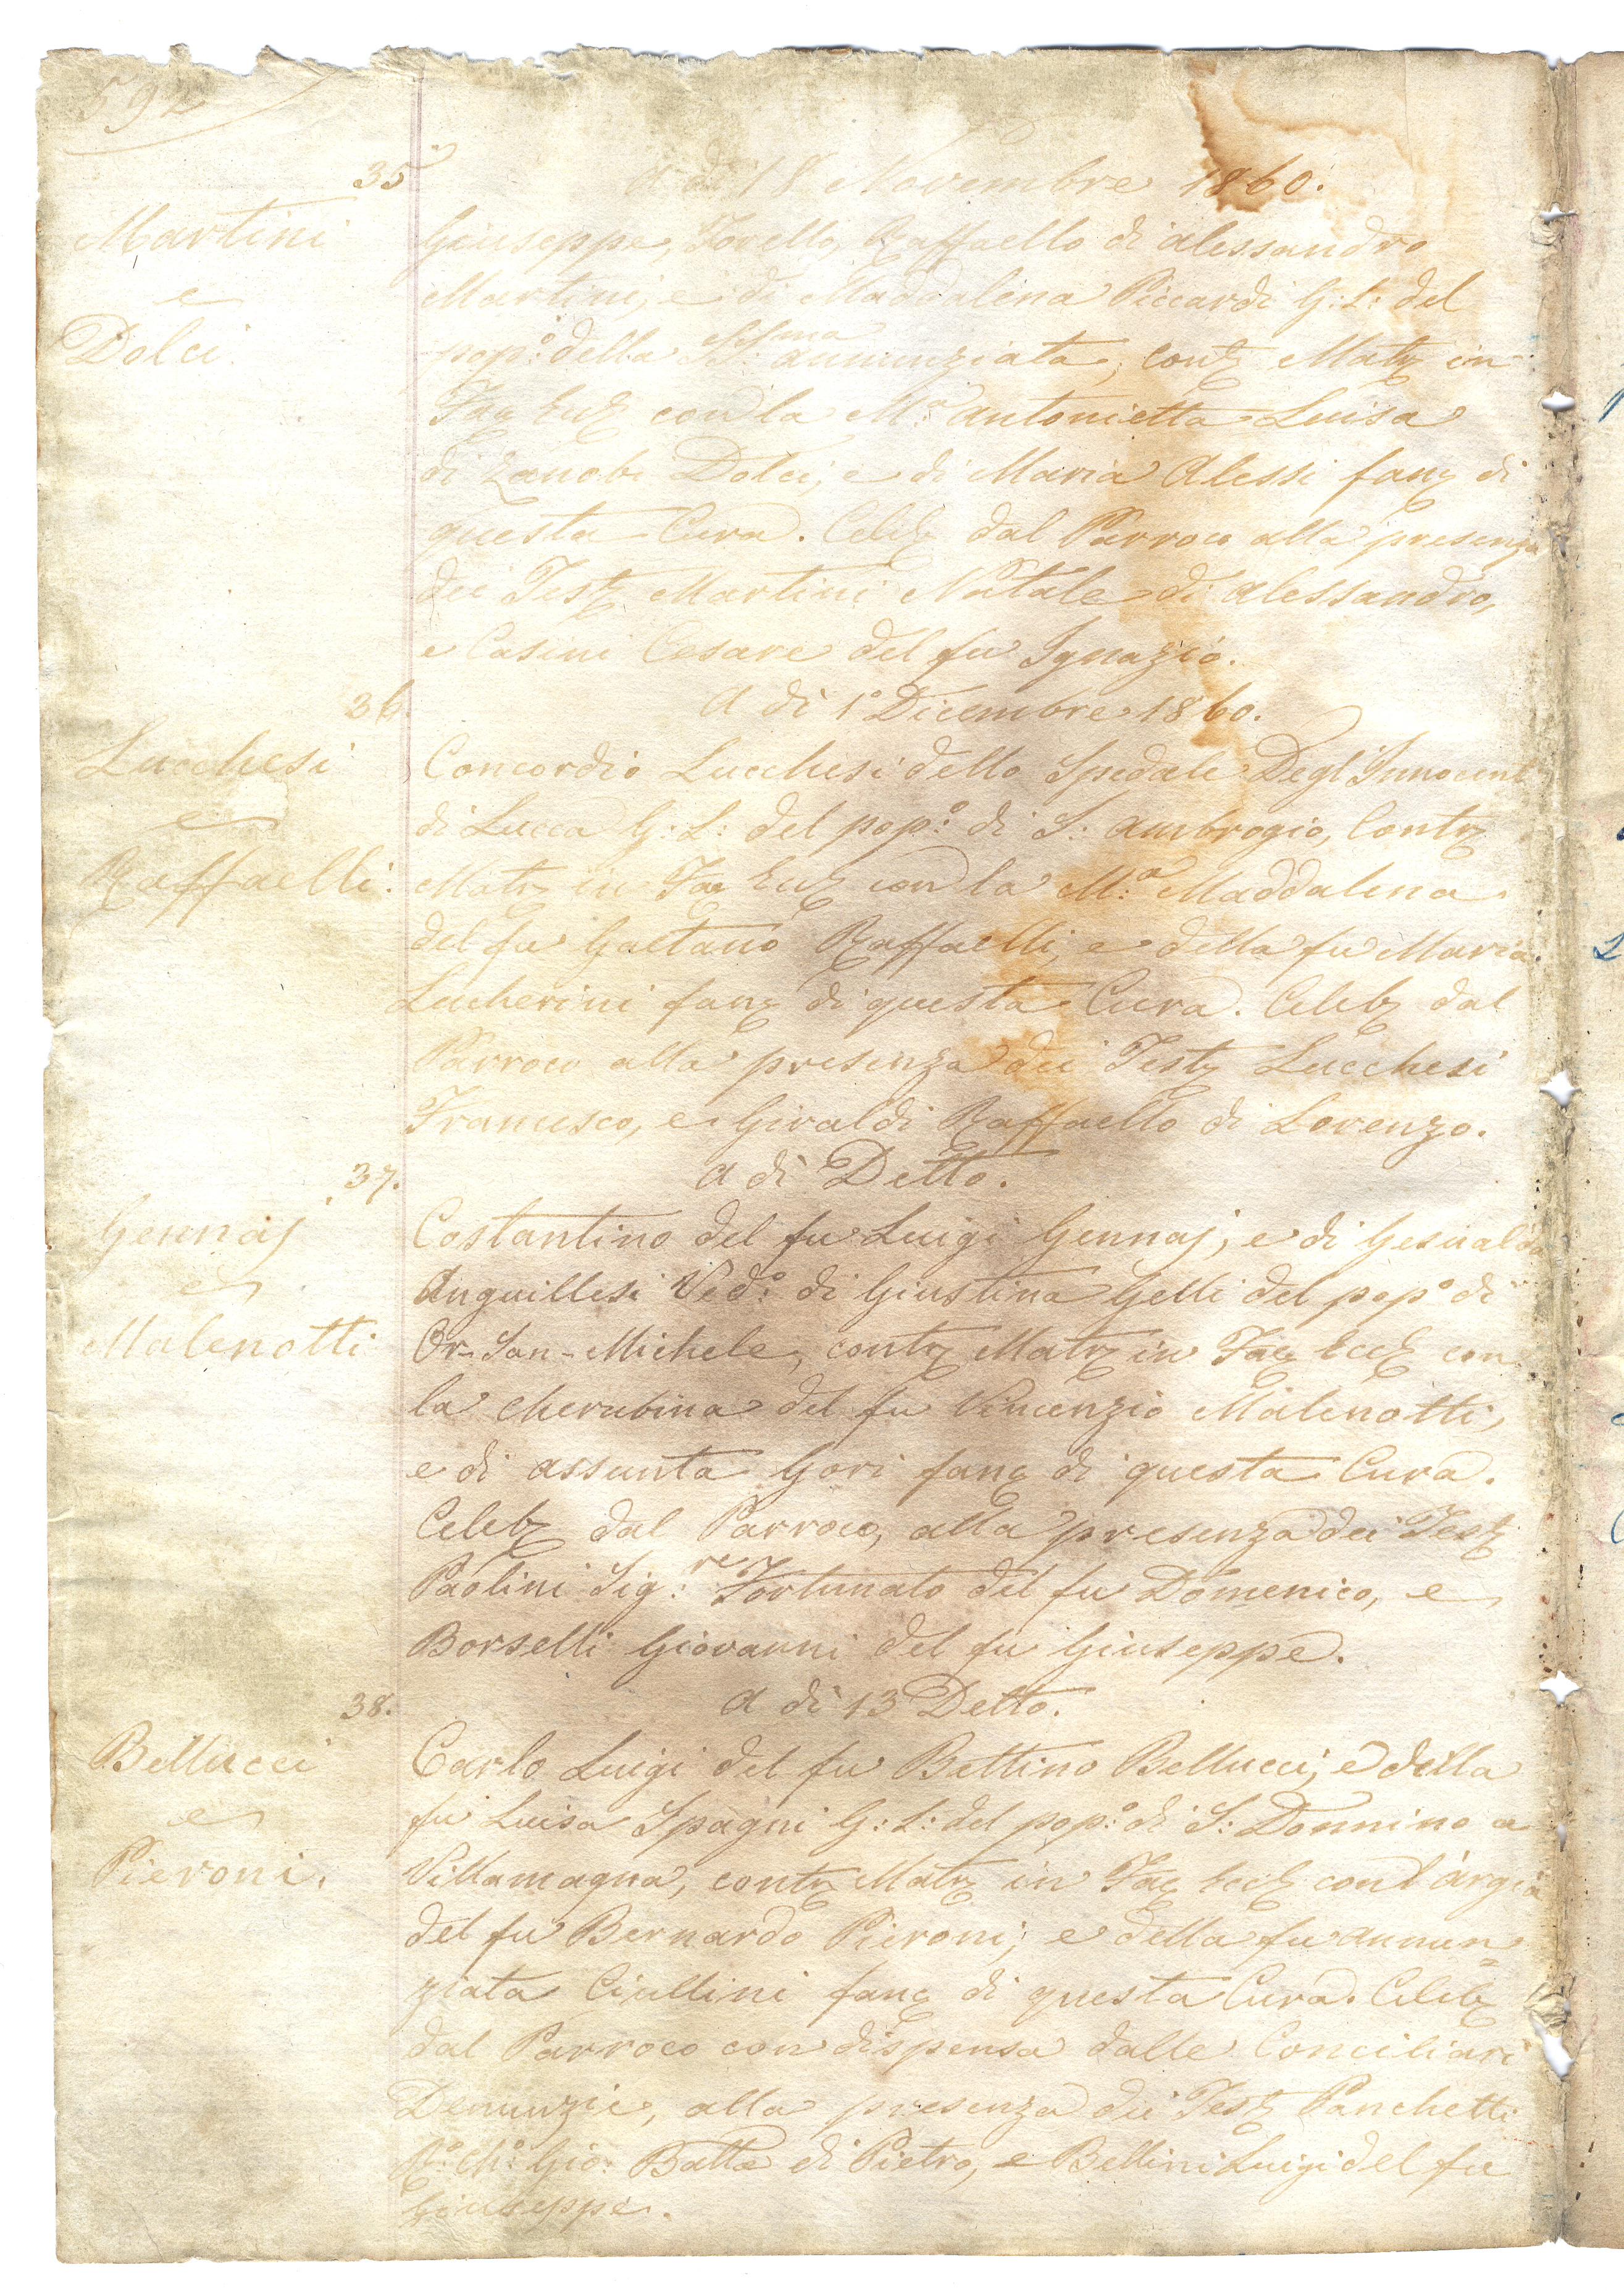 592
35
A dì 18 Novembre 1860.
Martini
e
Dolci
Giuseppe, Torello, Raffaello di Alessandro
Martini, e di Maddalena Piccardi G: L: del
pop:o della SS:ma Annunziata, contz Matz in
Fac Eccl con la M:a Antonietta Luisa
di Zanobi Dolci, e di Maria Alessi fanc di
questa Cura. Celebz dal Parroco alla presenza
dei Testz Martini Natale di Alessandro,
e Casini Cesare del fu Ignazio.
36.
A dì 1° Dicembre 1860.
Lucchesi
e
Raffaelli.
Concordio Lucchesi dello Spedale Degl'Innocenti
di Lucca G: L: del pop:o di S: Ambrogio, Contz
Matz in Fac Eccl con la M:a Maddalena
del fu Gaetano Raffaelli, e della fu Maria
Lucherini fanc di questa Cura. Celebz dal
Parroco alla presenza dei Testz Lucchesi
Francesco, e Giraldi Raffaello di Lorenzo.
37.
A dì Detto.
Gennaj
e
Malenotti
Costantino del fu Luigi Gennaj, e di Gesualda
Anguillesi Ved:o di Giustina Gelli del pop:o di
Or-San-Michele, contz Matz in Fac Eccl con
la Cherubina del fu Vincenzio Malenotti,
e di Assunta Gori fanc di questa Cura.
Celebz dal Parroco, alla presenza dei Testz
Paolini Sig:re Fortunato del fu Domenico, e
Borselli Giovanni del fu Giuseppe.
38.
A dì 13 Detto.
Bellucci
e
Pieroni.
Carlo Luigi del fu Bettino Bellucci, e della
fu Luisa Spagni G: L: del pop:o di S: Donnino a
Villamagna, contz Matz in Fac Eccl con l'Argia
del fu Bernardo Pieroni; e della fu Annun=
ziata Ciullini fanc di questa Cura. Celebz
dal Parroco con dispensa dalle Conciliari
Denunzie, alla presenza dei Testz Panchetti
Gio: Batta di Pietro, e Bellini Luigi del fu
Giuseppe.